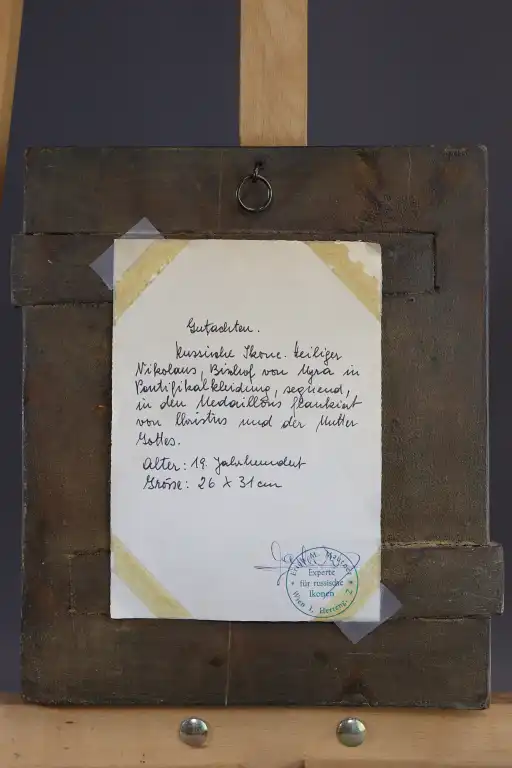 Gutachten.
Russische Ikone. Heiliger
Nikolaus, Bischof von Myra in
Pontifikalkleidung, segnend,
in den Medaillons flankiert
von Christus und der Mutter
Gottes.
Alter: 19. Jahrhundert
Grösse: 26 x 31 cm
Experte
für russische
Ikonen
Wien I.